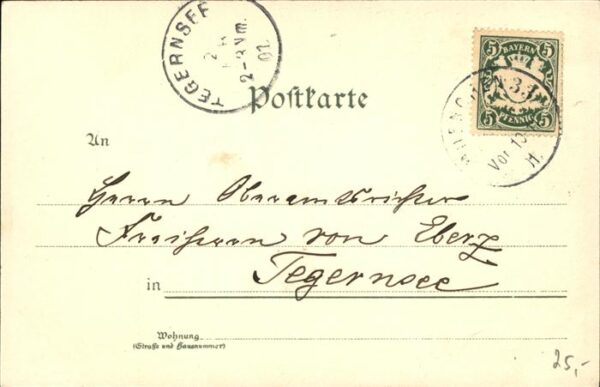 TEGERNSEE
2-3 Nm.
01.
5 BAYERN 5
5 PFENNIG 5
Vor
Postkarte
An
Herrn Oberamtsrichter
Freiherrn von Eberz
in Tegernsee
Wohnung
(Straße und Hausnummer)
25,-